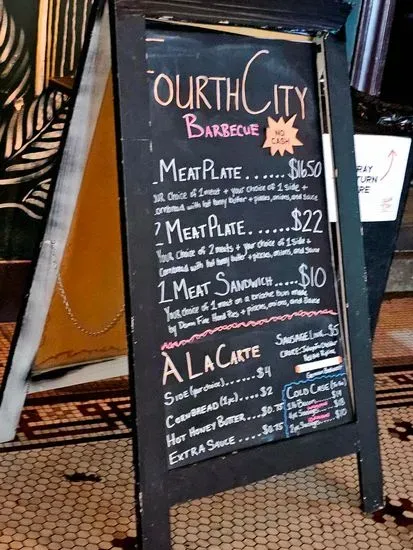 FOURTH CITY
BARBECUE
NO CASH
1 MEAT PLATE ...... $16.50
Your choice of 1 meat + your choice of 1 side +
Cornbread with hot honey butter + pickles, onions, and sauce
2 MEAT PLATE ...... $22
Your choice of 2 meats + your choice of 1 side +
Cornbread with hot honey butter + pickles, onions, and sauce
1 MEAT SANDWICH ..... $10
Your choice of 1 meat on a brioche bun made
by Damn Fine Hand Pies + pickles, onions, and sauce
À LA CARTE
SIDE (your choice) ...... $4
CORNBREAD (1 pc.) .... $2
HOT HONEY BUTTER .. $0.75
EXTRA SAUCE ..... $0.75
SAUSAGE LINK.. $5
CHOICE: Jalapeño Cheddar
COLD CASE
1 lb Bacon $14
4pc. Sausage $18
2pc. Sausage $10
TURN